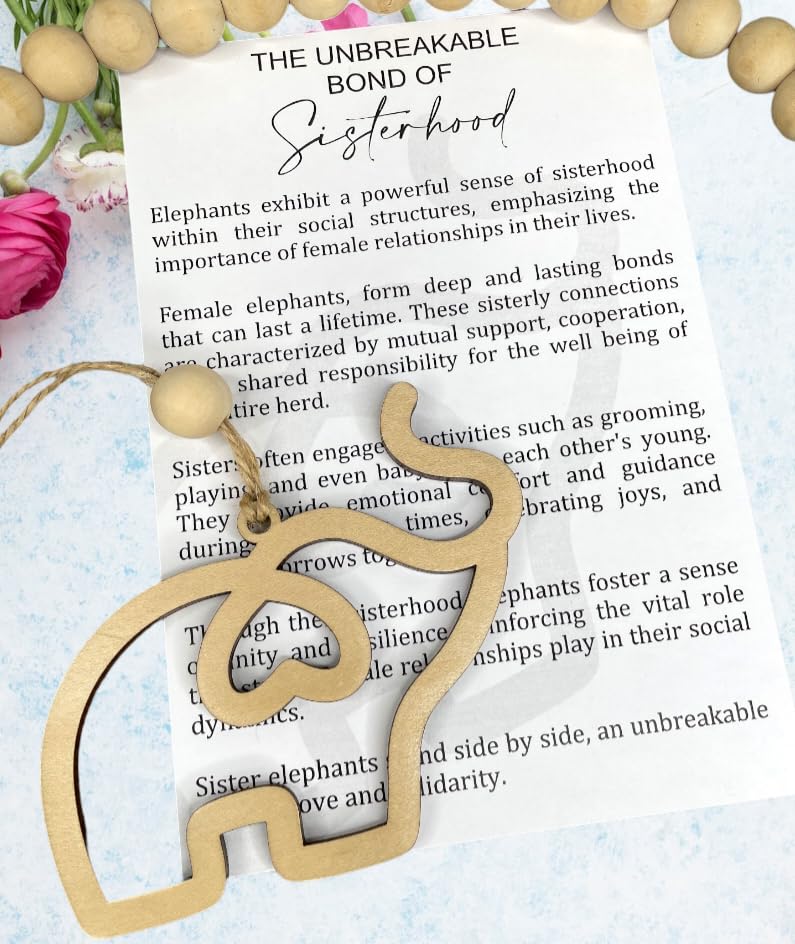 THE UNBREAKABLE
BOND OF
Sisterhood
Elephants exhibit a powerful sense of sisterhood
within their social structures, emphasizing the
importance of female relationships in their lives.
Female elephants, form deep and lasting bonds
that can last a lifetime. These sisterly connections
are characterized by mutual support, cooperation,
shared responsibility for the well being of
tire herd.
Sisters often engage activities such as grooming,
playing and even bab each other's young.
They provide emotional comfort and guidance
during times, celebrating joys, and
sorrows tog
Through the sisterhood elephants foster a sense
of unity and resilience reinforcing the vital role
relationships play in their social
dynamics.
Sister elephants stand side by side, an unbreakable
love and solidarity.